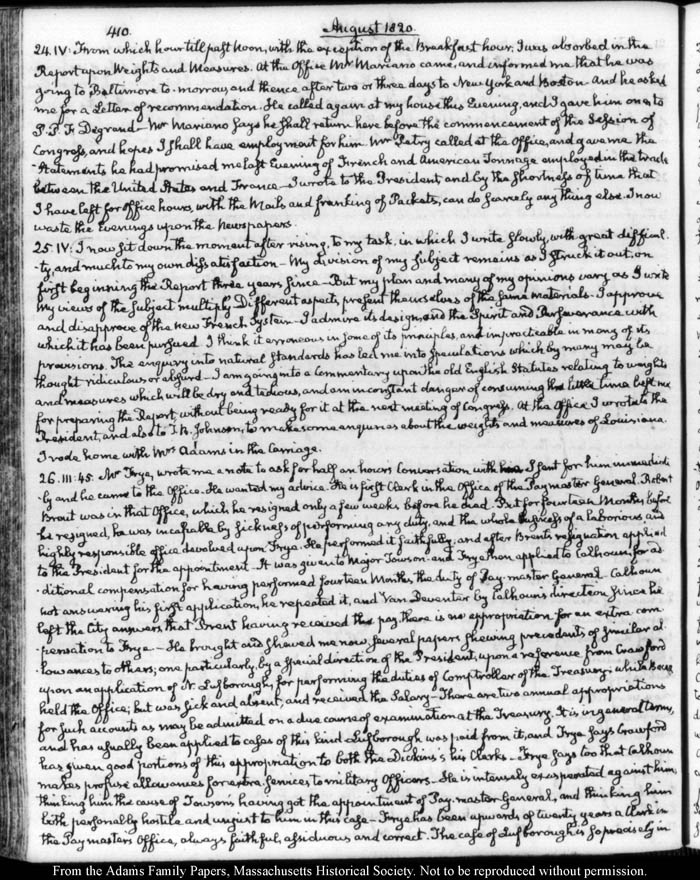 410.
August 1820.
24. IV: From which hour till past Noon, with the exception of the Breakfast hour, I was absorbed in the
Report upon Weights and Measures. At the Office Mr Mariano came, and informed me that he was
going to Baltimore to-morrow, and thence after two or three days to New York and Boston. And he asked
me for a Letter of recommendation. He called again at my house this Evening, and I gave him one to
P. P. F. Degrand— Mr Mariano says he shall return here before the commencement of the Session of
Congress, and hopes I shall have employment for him. Mr Petry called at the Office, and gave me the
Statements he had promised me last Evening of French and American Tonnage employed in the trade
between the United States and France— I wrote to the President and by the shortness of time that
I have left for Office hours, with the Mails and franking of Packets, can do scarcely any thing else. I now
waste the Evenings upon the Newspapers.
25. IV: I now sit down the moment after rising, to my task, in which I write slowly, with great difficul-
-ty, and much to my own dissatisfaction— My division of my subject remains as I struck it out, on
first beginning the Report three years since— But my plan and many of my opinions vary as I write
My views of the subject multiply. Different aspects present themselves of the same materials. I approve
and disapprove of the new French System— I admire its design, and the Spirit and Perseverance with
which it has been pursued. I think it erroneous in some of its principles, and impracticable in many of its
provisions. The enquiry into natural standards has led me into speculations which by many may be
thought ridiculous or absurd— I am going into a Commentary upon the old English Statutes relating to weights
and measures which will be dry and tedious, and am in constant danger of consuming the little time left me
for preparing the Report, without being ready for it at the next meeting of Congress. At the Office I wrote to the
President, and also to J. S. Johnson, to make some enquiries about the weights and measures of Louisiana.
I rode home with Mrs Adams in the Carriage.
26. III:45. Mr Frye, wrote me a note to ask for half an hours Conversation with me. I sent for him immediate-
-ly and he came to the Office. He wanted my advice. He is first Clerk in the Office of the Paymaster General. Robert
Brent was in that Office, which he resigned only a few weeks before he died. But for fourteen Months before
he resigned, he was incapable by sickness of performing any duty, and the whole business of a laborious and
highly responsible office devolved upon Frye. He performed it faithfully, and after Brent's resignation applied
to the President for the appointment. It was given to Major Towson. and Frye then applied to Calhoun for ad-
-ditional compensation for having performed fourteen Months the duty of Pay-master General. Calhoun
not answering his first application, he repeated it, and Van Deventer by Calhoun's direction since he
left the City answers, that Brent having received the pay there is no appropriation for an extra com-
-pensation to Frye.— He brought and shewed me now several papers shewing precedents of similar al-
-lowances to others; one particularly, by a special direction of the President, upon a reference from Crawford
upon an application of N. Lufborough, for performing the duties of Comptroller of the Treasury, while Bacon
held the Office; but was sick and absent, and received the Salary— There are two annual appropriations
for such accounts as may be admitted on a due course of examination at the Treasury. It is in general terms,
and has usually been applied to cases of this kind. Lufborough was paid from it, and Frye says Crawford
has given good portions of this appropriation to both the Dickins's his Clerks— Frye says too that Calhoun
makes profuse allowances for extra services to military Officers— He is intensely exasperated against him,
thinking him the cause of Towson's having got the appointment of Pay-master General, and thinking him
both personally hostile and unjust to him in this case— Frye has been upwards of twenty years a Clerk in
the Paymasters Office, always faithful, assiduous and correct. The case of Lufborough is so precisely in
From the Adams Family Papers, Massachusetts Historical Society. Not to be reproduced without permission.